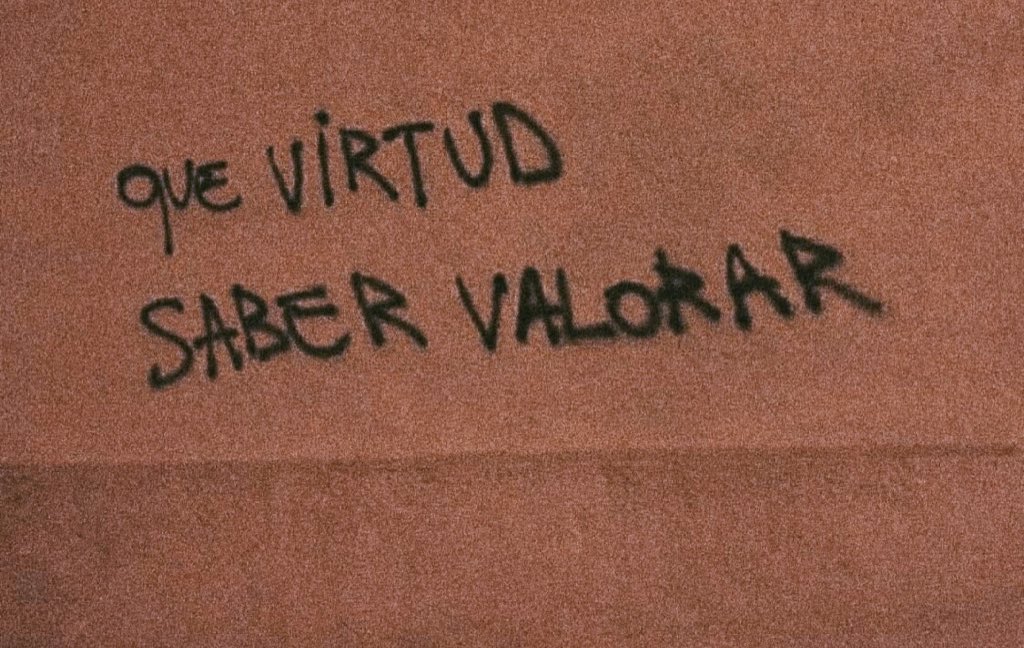 QUE ViRTUD
SABER VALORAR